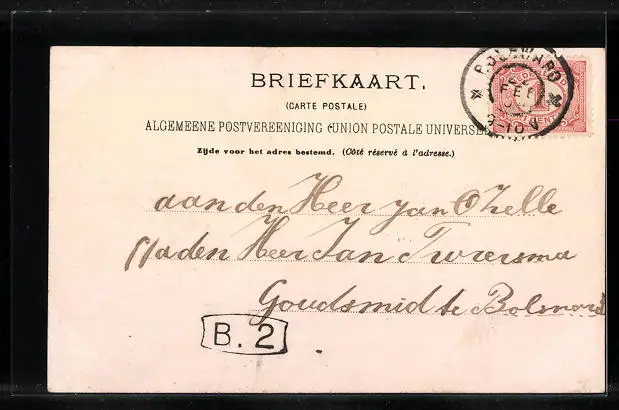 BRIEFKAART.
(CARTE POSTALE)
ALGEMEENE POSTVEREENIGING (UNION POSTALE UNIVERSE
Zijde voor het adres bestemd. (Côté réservé à l'adresse.)
BOLSWARD
FEB
9-10 V
NEDERLAND
CENT
aan den Heer Jan O Zelle
p/a den Heer Jan Twiersma
Goudsmid te Bolsward
B. 2